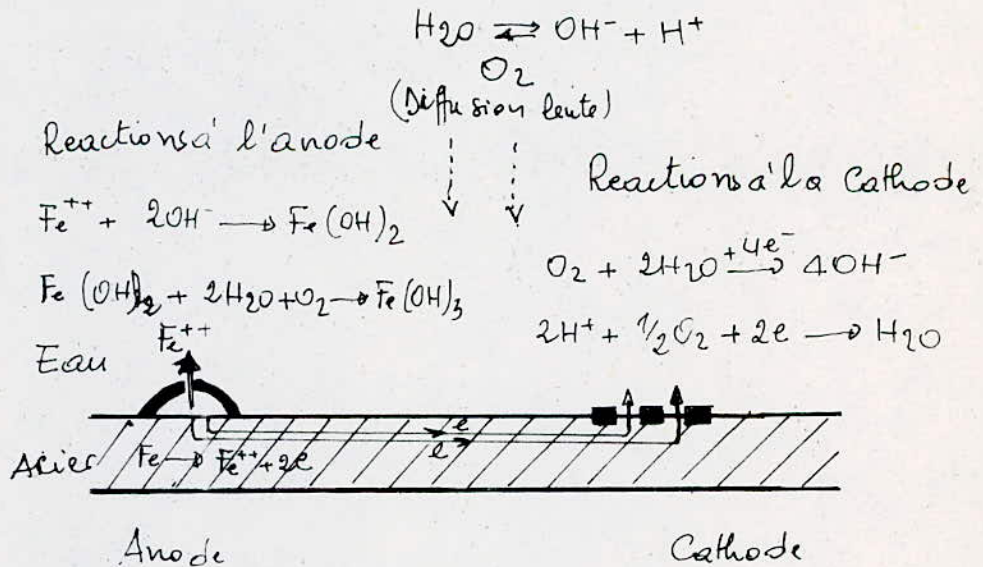 H2O ⇌ OH⁻ + H⁺
O₂
(Diffusion lente)
Reactions à l'anode
Fe⁺⁺ + 2OH⁻ → Fe(OH)₂
Fe(OH)₂ + 2H₂O + O₂ → Fe(OH)₃
Reactions à la Cathode
O₂ + 2H₂O +4e⁻ → 4OH⁻
2H⁺ + 1/2 O₂ + 2e → H₂O
Fe⁺⁺
Eau
e
e
Acier
Fe → Fe⁺⁺ + 2e
Anode
Cathode